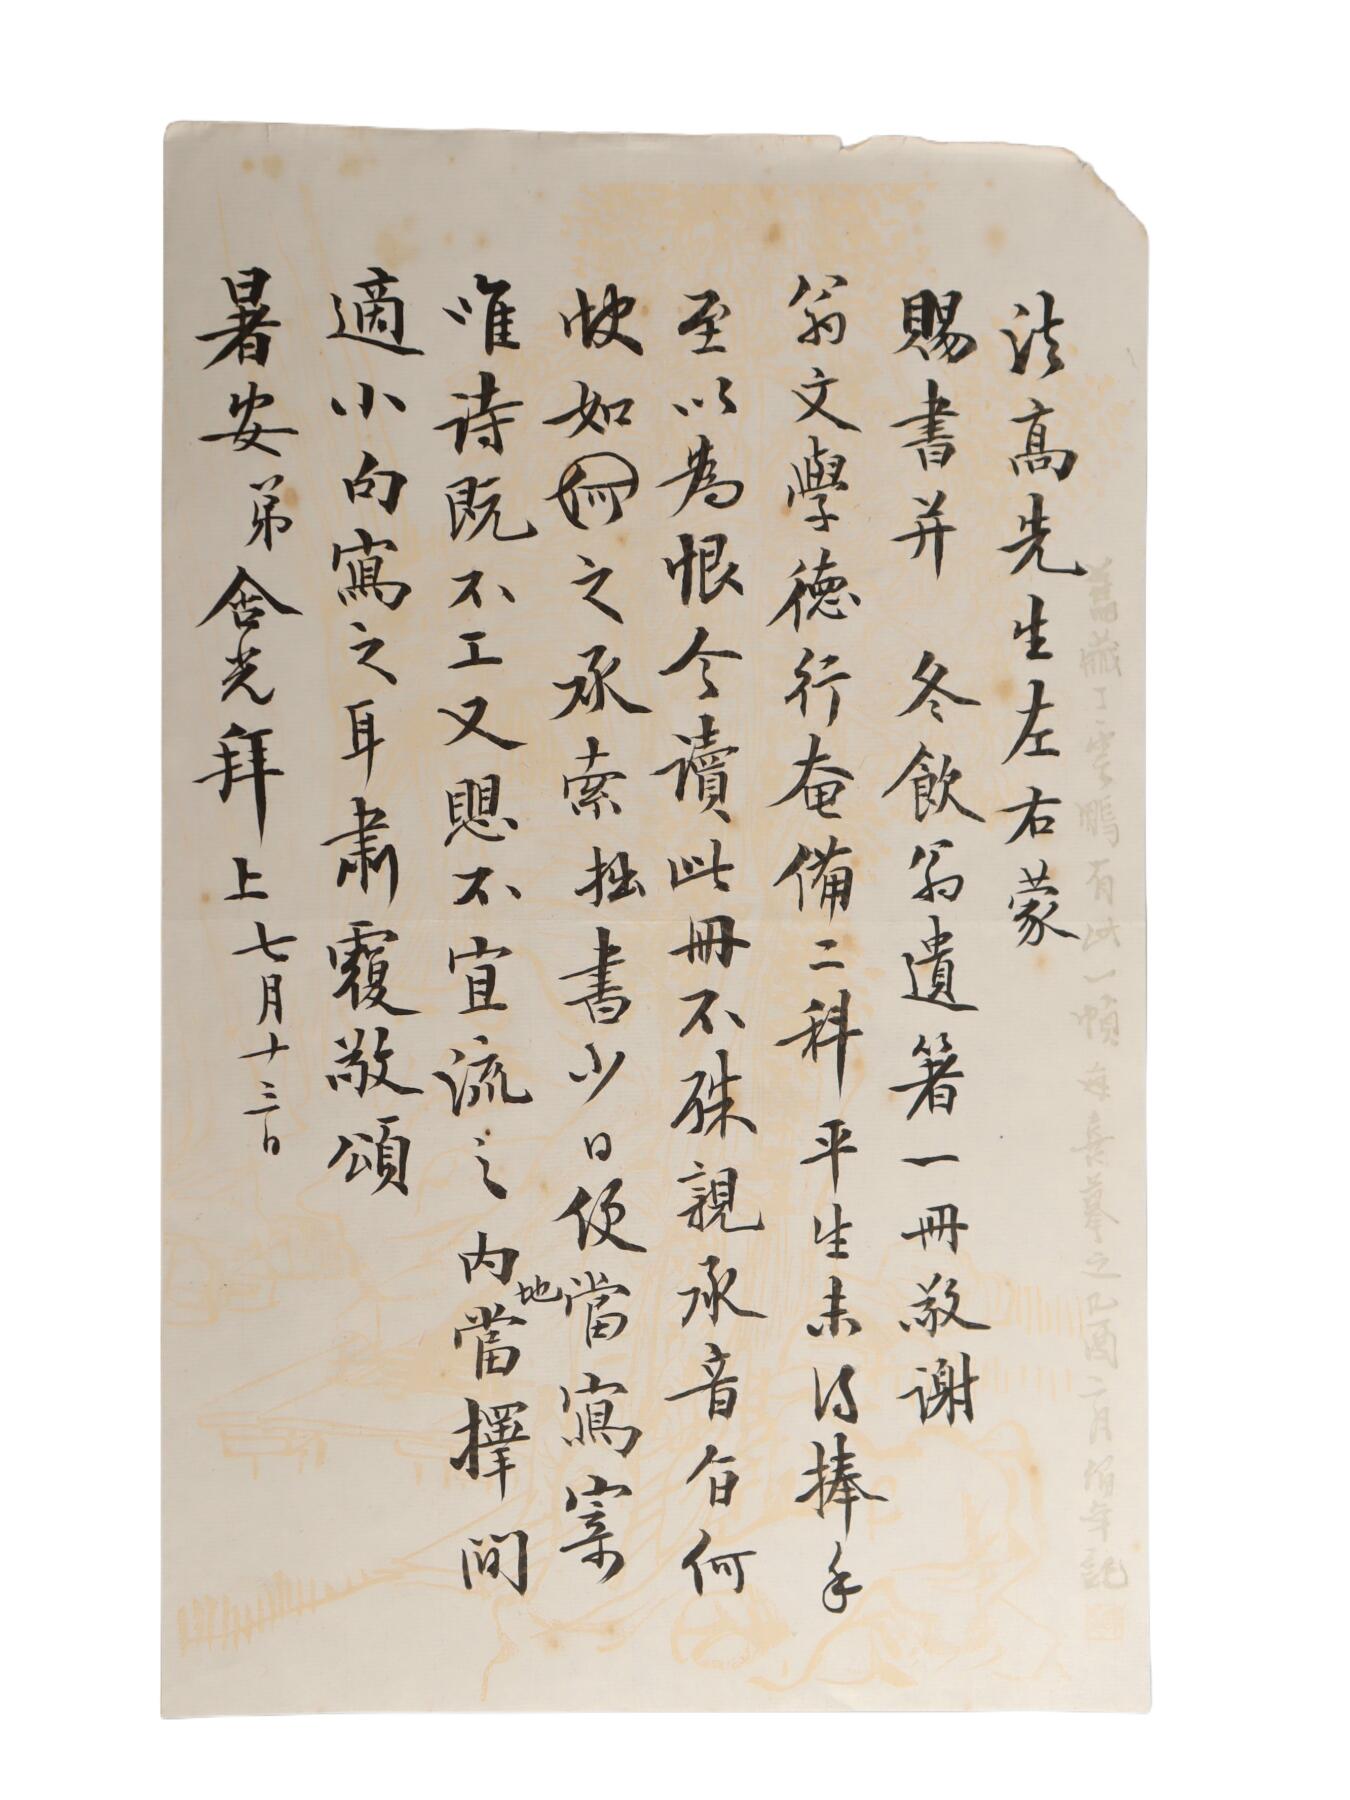 法高先生左右蒙
賜書并　冬飲翁遺箸一冊敬謝
翁文學德行奄備二科平生未得捧手
至以為恨今讀此冊不殊親承音旨何
快如何之承索拙書少日便當寫寄
唯詩既不工又思不宜流之內地當擇閒
適小句寫之耳肅覆敬頌
暑安弟含光拜上七月十三日
舊藏丁雲鵬有此一幀每喜摹之己酉二月伯年記